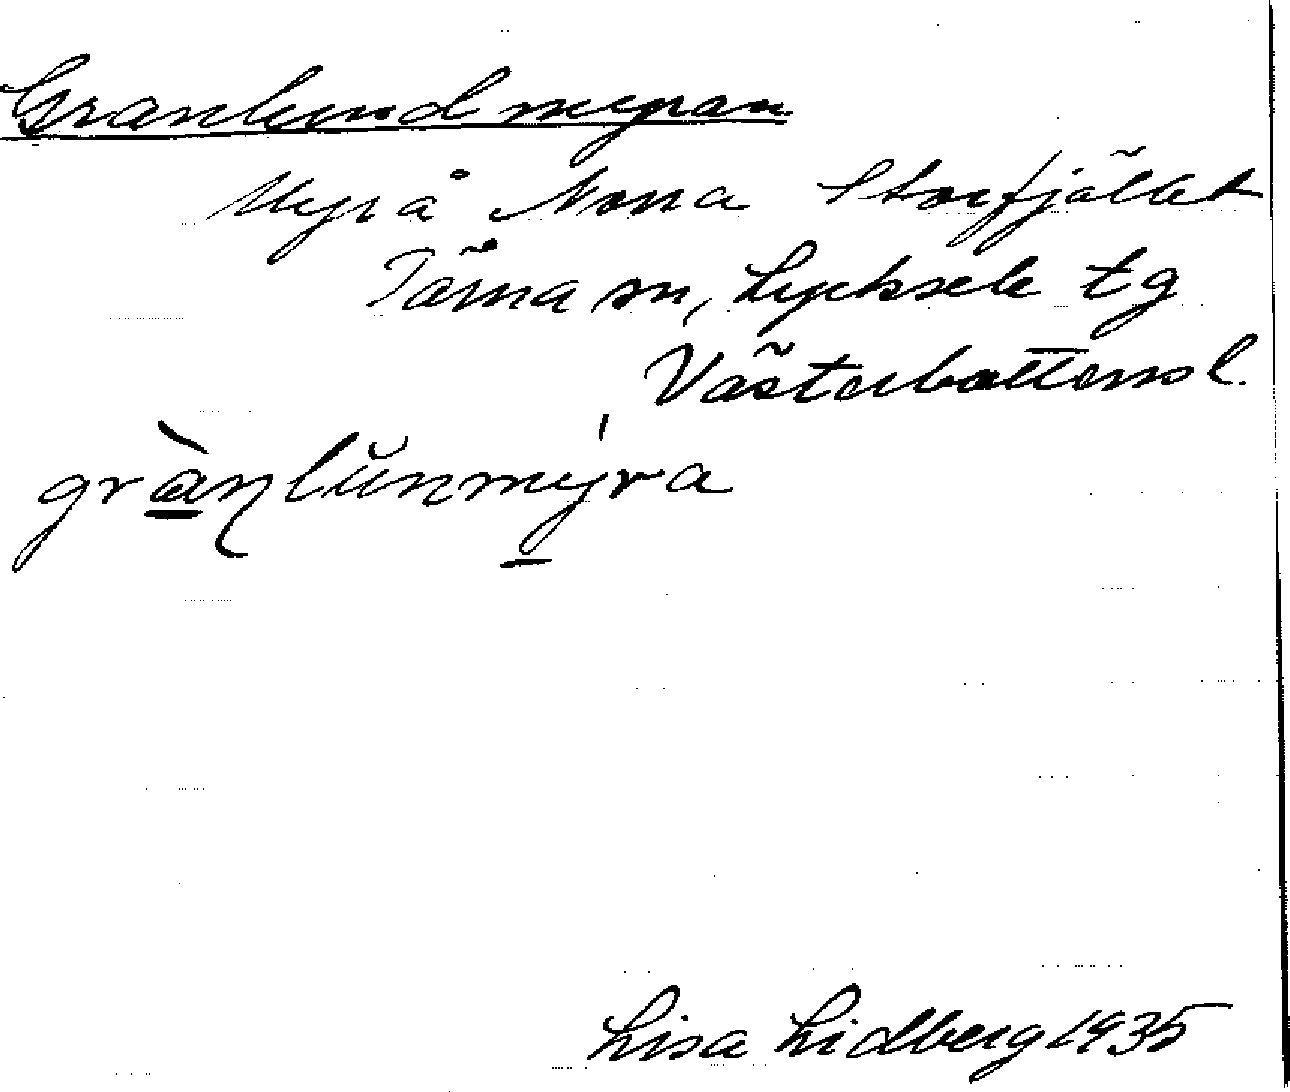 Granlundmyran
Myr å Norra Storfjället
Tärna sn, Lycksele tg
Västerbottens l.
grànlŭnmyŕa
Lisa Lidberg 1935